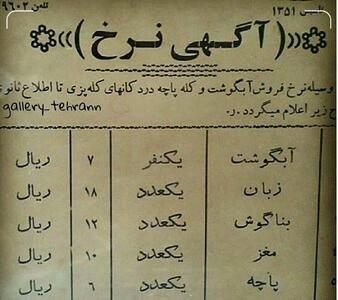 تلفن ۹۶۰۲
تاسیس ۱۳۵۱
(آگهی نرخ)
وسیله نرخ فروش آبگوشت و کله پاچه در دکانهای کله پزی تا اطلاع ثانوی
ح زیر اعلام میگردد .ر.
gallery_tehrann
آبگوشت یکنفر ۷ ریال
زبان یکعدد ۱۸ ریال
بناگوش یکعدد ۱۲ ریال
مغز یکعدد ۱۰ ریال
پاچه یکعدد ۶ ریال